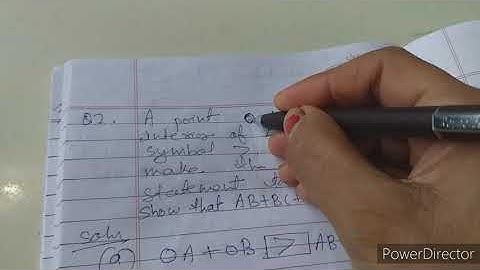 Q2. A point O
interior of
symbol >
make the
statement
Show that AB+BC+
Soln
(a) OA + OB [>] AB
PowerDirector